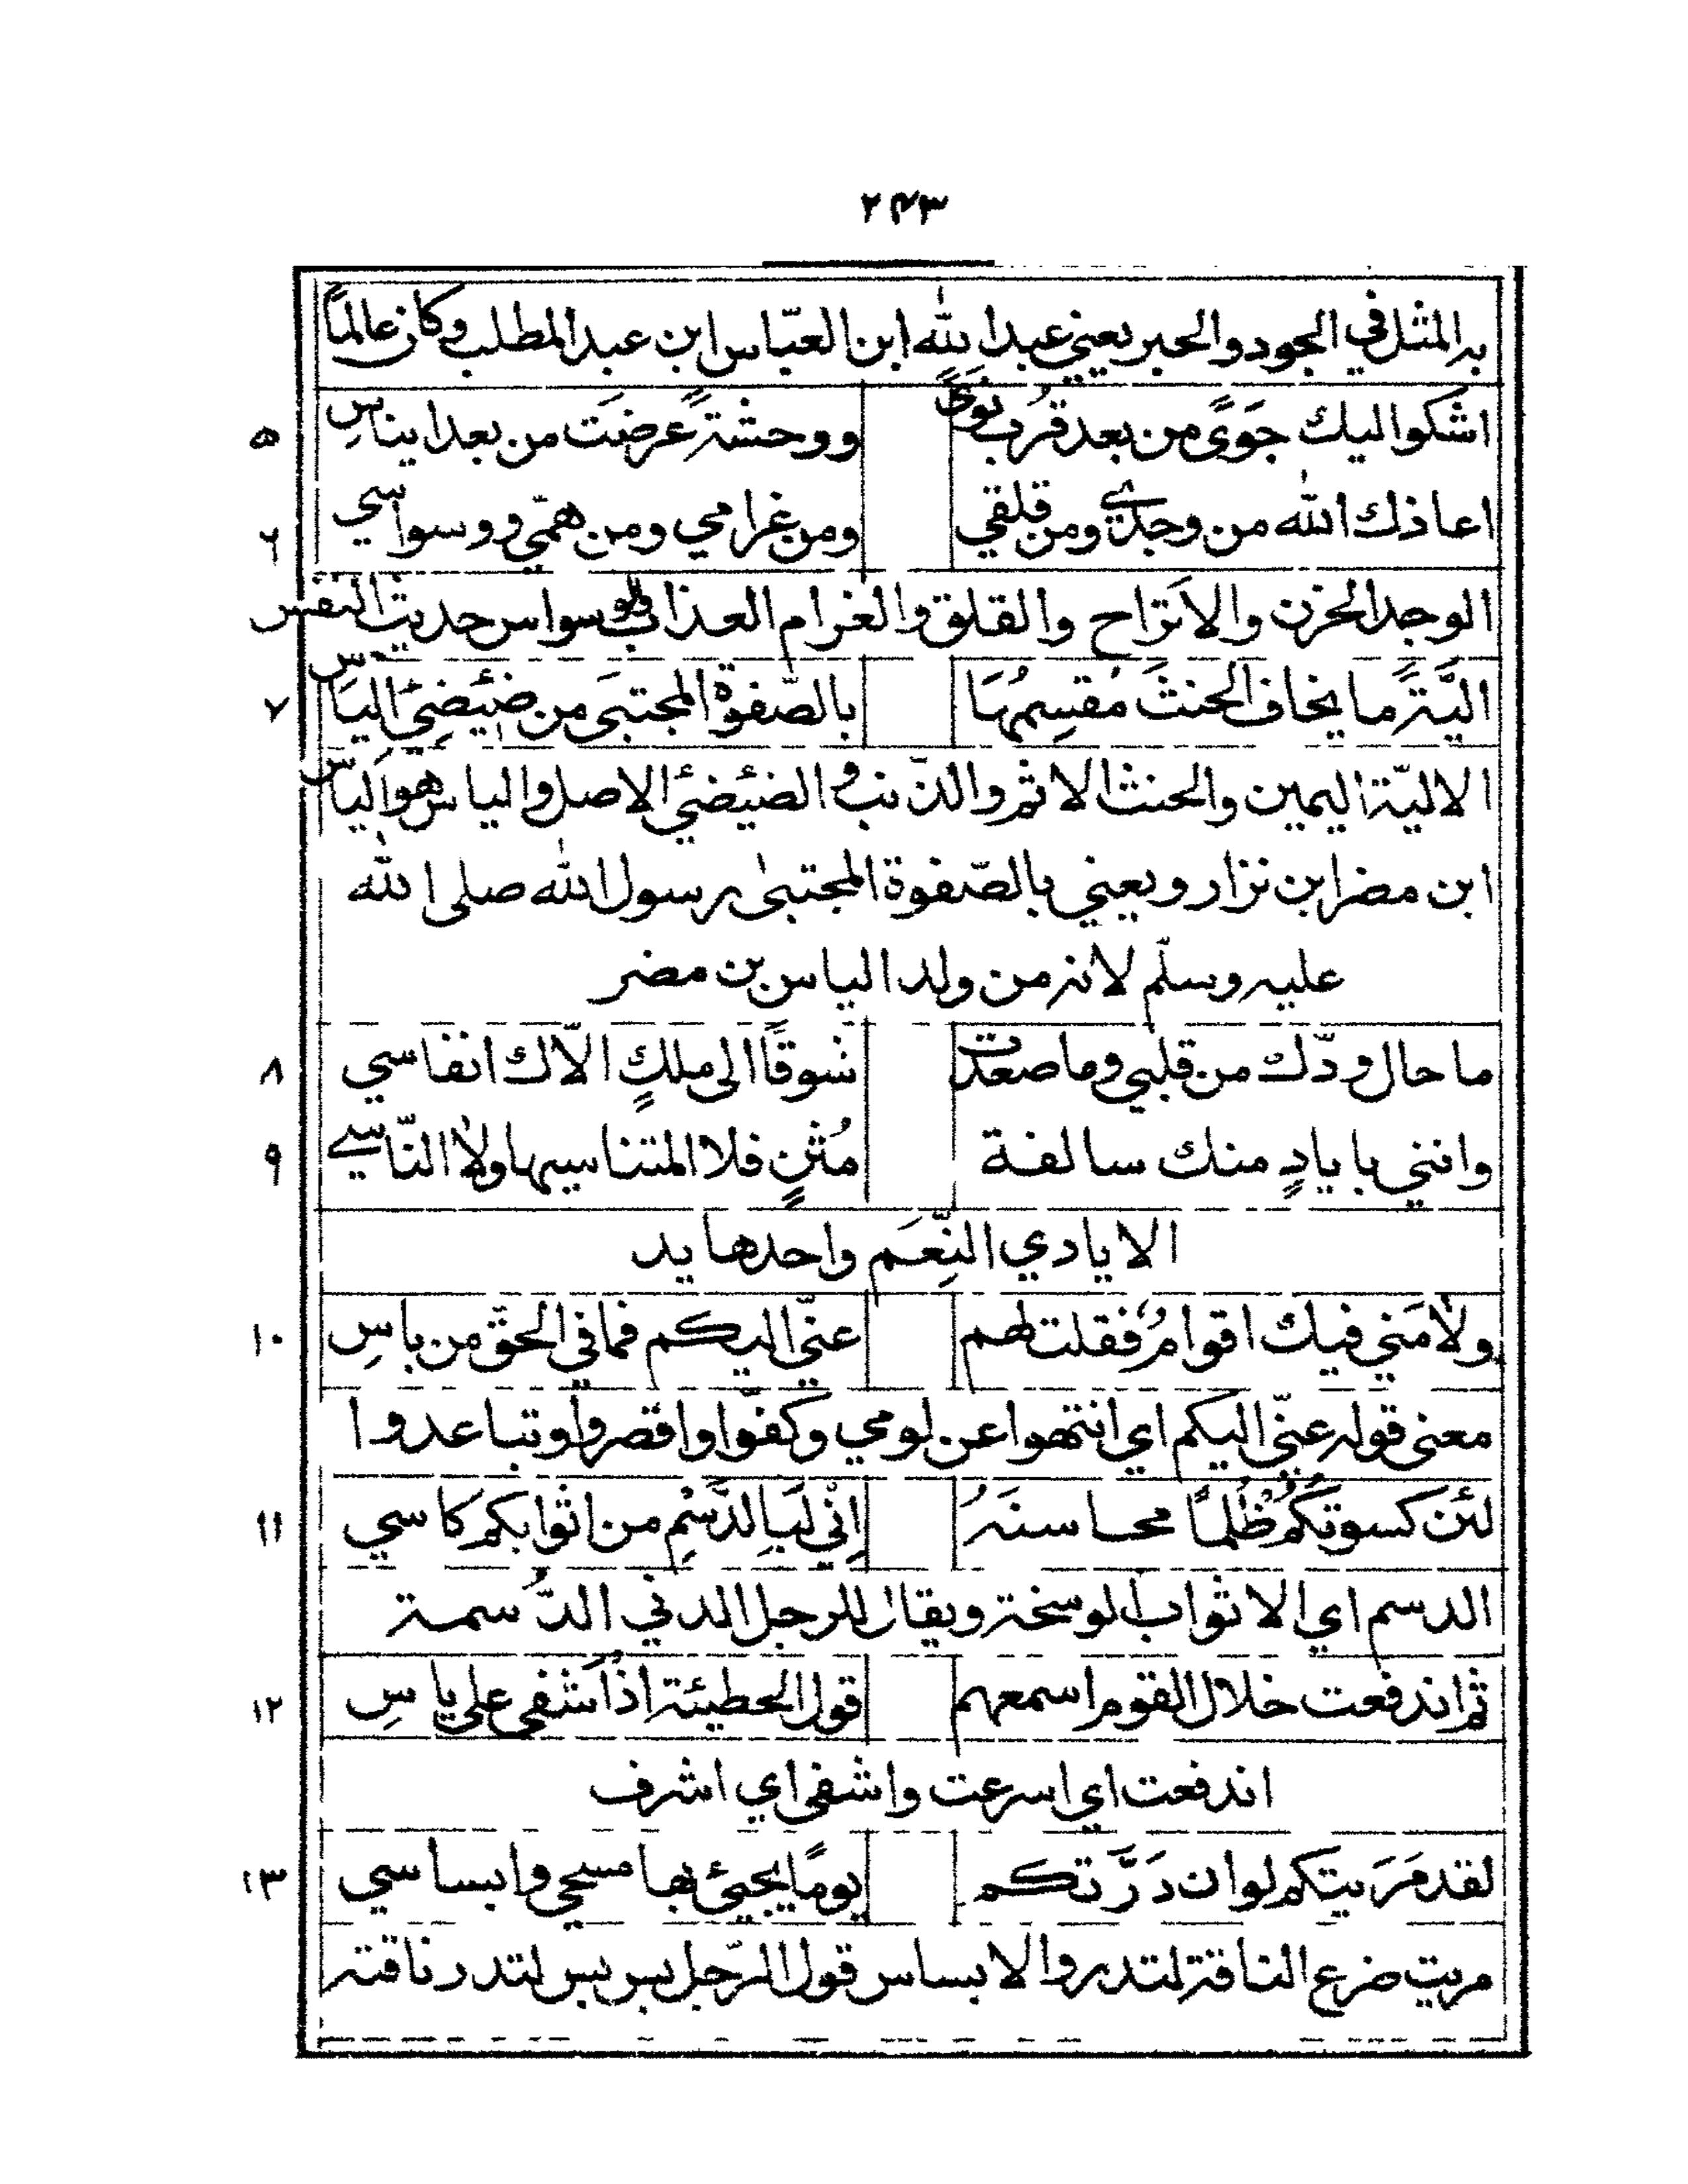 ٢٤٣
به المثل في الجود والحبر يعني عبد الله ابن العبّاس ابن عبد المطلب وكان عالماً
اشكوا اليك جَوًى من بعد قُرب نَوًى ووحشةً عرضَت من بعد ايناسِ ٥
اعاذك الله من وجدي ومن قلقي ومن غرامي ومن همّي ووسواسي ٦
الوجد الحزن والاتراح والقلق والغرام العذاب والوسواس حديث النفس
اليَّةً ما يخاف الحنثَ مُقسِمُهَا بالصّفوة المجتبَى من ضئِضئ الياسِ ٧
الاليّة اليمين والحنث الاثم والذّنب والضئِضئ الاصل والياس هو الياس
ابن مضر ابن نزار ويعني بالصّفوة المجتبىٰ رسول الله صلى الله
عليه وسلّم لانه من ولد الياس بن مضر
ما حال ودّك من قلبي وما صعدت شوقًا الى ملكٍ الّاك انفاسي ٨
وانني بايادٍ منك سالفة مُثنٍ فلا المتناسيها ولا النّاسي ٩
الايادي النِّعَم واحدها يد
ولَامَني فيك اقوامٌ فقلت لهم عنّي اليكم فما في الحقّ من باسِ ١٠
معنى قوله عنّي اليكم اي انتهوا عن لومي وكفّوا واقصروا وتباعدوا
لئن كسوتكُم ظُلمًا محاسنَهُ اِنّي لَبِالدَّسْمِ من اثوابكم كاسي ١١
الدسم اي الاثواب الوسخة ويقال للرجل الدني الدُّسمة
ثم اندفعت خلال القوم اسمعهم قول الحطيئة اذ اَشفى على ياسِ ١٢
اندفعت اي اسرعت واشفى اي اشرف
لقد مَرَيتكم لو ان دَرَّتكم يومًا يجيئ بها مسحي وابساسي ١٣
مريت ضرع الناقة لتدر والابساس قول الرّجل بس بس لتدر ناقته